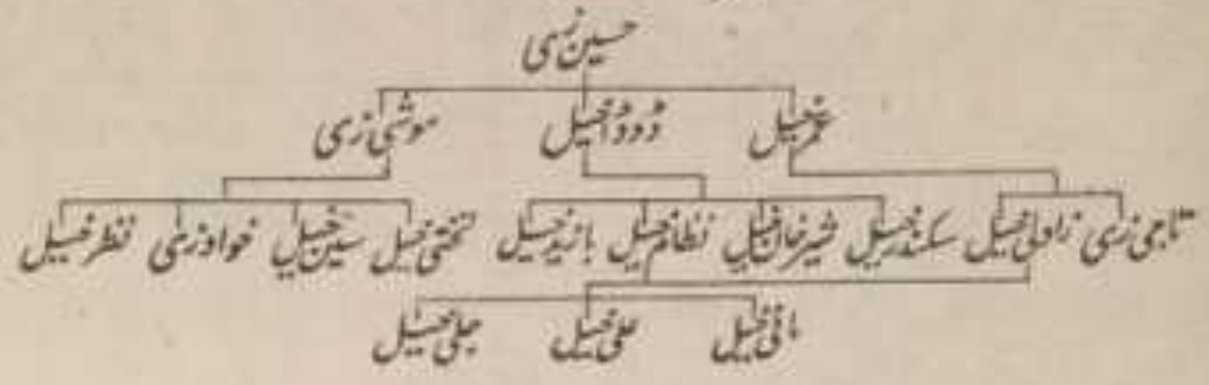 حسین زی
عمر خیل دوؤد خیل موشی زی
تاجی زی زاولی خیل سکندر خیل شیر خان خیل نظام خیل بازید خیل تختی خیل سین خیل خوادزی نظر خیل
باقی خیل علی خیل جلی خیل